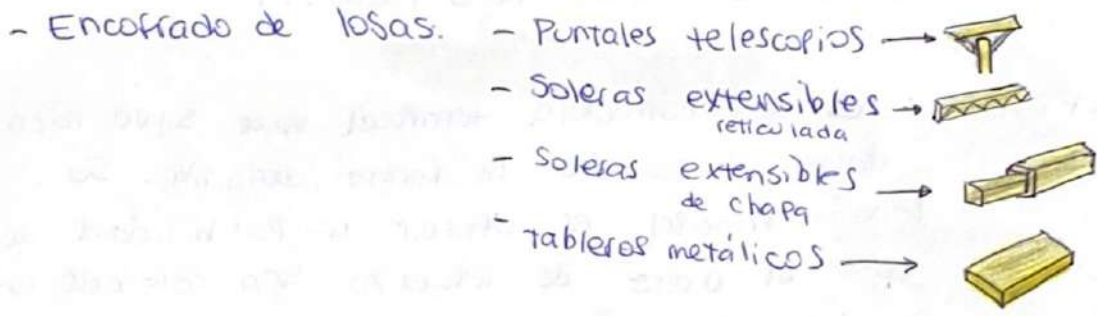 - Encofrado de losas. - Puntales telescopios
- Soleras extensibles
reticulada
- Soleras extensibles
de chapa
-
Tableros metálicos